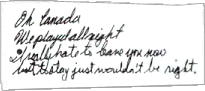 Oh Canada
We played all right
I really hate to leave you now
but to stay just wouldn't be right.